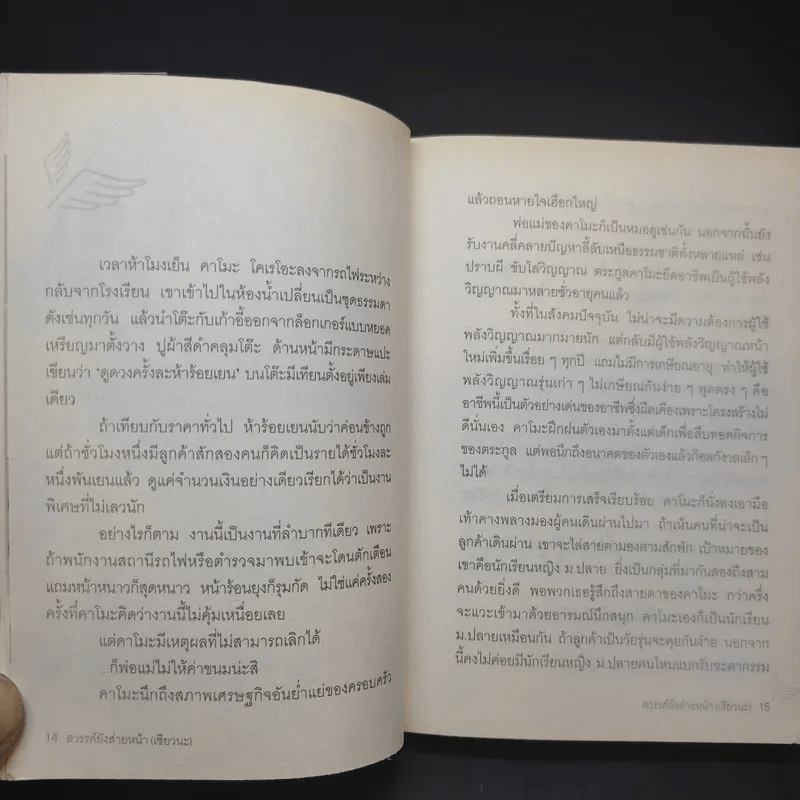 เวลาห้าโมงเย็น คาโมะ โคเรโอะลงจากรถไฟระหว่าง
กลับจากโรงเรียน เขาเข้าไปในห้องน้ำเปลี่ยนเป็นชุดธรรมดา
ดังเช่นทุกวัน แล้วนำโต๊ะกับเก้าอี้ออกจากล็อกเกอร์แบบหยอด
เหรียญมาตั้งวาง ปูผ้าสีดำคลุมโต๊ะ ด้านหน้ามีกระดาษแปะ
เขียนว่า ‘ดูดวงครั้งละห้าร้อยเยน’ บนโต๊ะมีเทียนตั้งอยู่เพียงเล่ม
เดียว
ถ้าเทียบกับราคาทั่วไป ห้าร้อยเยนนับว่าค่อนข้างถูก
แต่ถ้าชั่วโมงหนึ่งมีลูกค้าสักสองคนก็คิดเป็นรายได้ชั่วโมงละ
หนึ่งพันเยนแล้ว ดูแค่จำนวนเงินอย่างเดียวเรียกได้ว่าเป็นงาน
พิเศษที่ไม่เลวนัก
อย่างไรก็ตาม งานนี้เป็นงานที่ลำบากทีเดียว เพราะ
ถ้าพนักงานสถานีรถไฟหรือตำรวจมาพบเข้าจะโดนตักเตือน
แถมหน้าหนาวก็สุดหนาว หน้าร้อนยุงก็รุมกัด ไม่ใช่แค่ครั้งสอง
ครั้งที่คาโมะคิดว่างานนี้ไม่คุ้มเหนื่อยเลย
แต่คาโมะมีเหตุผลที่ไม่สามารถเลิกได้
...ก็พ่อแม่ไม่ให้ค่าขนมน่ะสิ
คาโมะนึกถึงสภาพเศรษฐกิจอันย่ำแย่ของครอบครัว
14 สวรรค์ยังส่ายหน้า (เซียวนะ)
แล้วถอนหายใจเฮือกใหญ่
พ่อแม่ของคาโมะก็เป็นหมอดูเช่นกัน นอกจากนั้นยัง
รับงานคลี่คลายปัญหาลี้ลับเหนือธรรมชาติทั้งหลายแหล่ เช่น
ปราบผี ขับไล่วิญญาณ ตระกูลคาโมะยึดอาชีพเป็นผู้ใช้พลัง
วิญญาณมาหลายชั่วอายุคนแล้ว
ทั้งที่ในสังคมปัจจุบัน ไม่น่าจะมีความต้องการผู้ใช้
พลังวิญญาณมากมายนัก แต่กลับมีผู้ใช้พลังวิญญาณหน้า
ใหม่เพิ่มขึ้นเรื่อย ๆ ทุกปี แถมไม่มีการเกษียณอายุ ทำให้ผู้ใช้
พลังวิญญาณรุ่นเก่า ๆ ไม่เกษียณกันง่าย ๆ พูดตรง ๆ คือ
อาชีพนี้เป็นตัวอย่างเด่นของอาชีพซึ่งฝืดเคืองเพราะโครงสร้างไม่
ดีนั่นเอง คาโมะฝึกฝนตัวเองมาตั้งแต่เด็กเพื่อสืบทอดกิจการ
ของตระกูล แต่พอนึกถึงอนาคตของตัวเองแล้วก็อดกังวลเล็ก ๆ
ไม่ได้
เมื่อเตรียมการเสร็จเรียบร้อย คาโมะก็นั่งลงเอามือ
เท้าคางพลางมองผู้คนเดินผ่านไปมา ถ้าเห็นคนที่น่าจะเป็น
ลูกค้าเดินผ่าน เขาจะไล่สายตามองตามสักพัก เป้าหมายของ
เขาคือนักเรียนหญิง ม.ปลาย ยิ่งเป็นกลุ่มที่มากันสองถึงสาม
คนด้วยยิ่งดี พอพวกเธอรู้สึกถึงสายตาของคาโมะ กว่าครึ่ง
จะแวะเข้ามาด้วยอารมณ์นึกสนุก คาโมะเองก็เป็นนักเรียน
ม.ปลายเหมือนกัน ถ้าลูกค้าเป็นวัยรุ่นจะคุยกันง่าย นอกจาก
นี้คงไม่ค่อยมีนักเรียนหญิง ม.ปลายคนไหนแบกรับชะตากรรม
สวรรค์ยังส่ายหน้า (เซียวนะ) 15